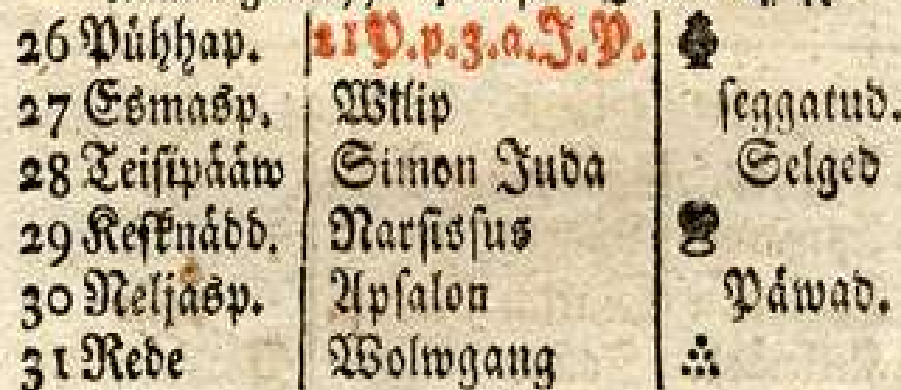 26 Pühhap. 21 P.p.z.a.J.P.
27 Esmasp. Wtlip seggatud.
28 Teisipääw Simon Juda Selged
29 Kesknädd. Narsissus
30 Neljasp. Apsalon Päwad.
31 Rede Wolwgang